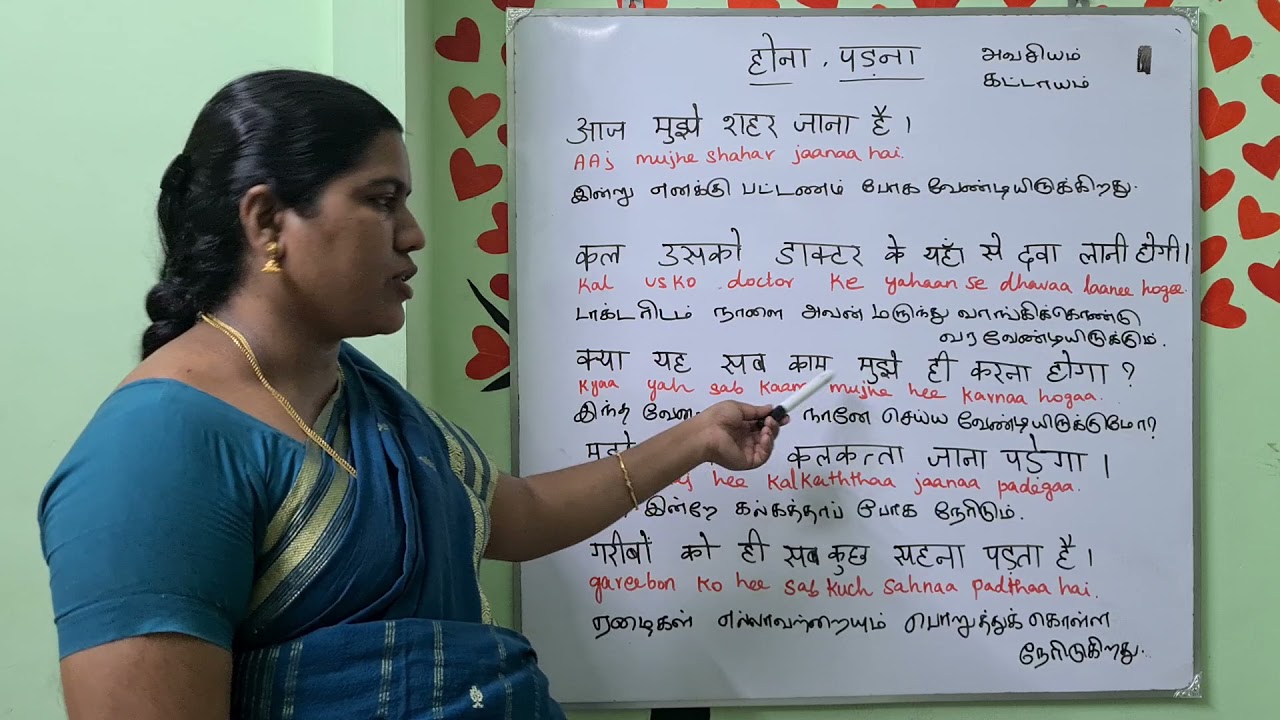 होना, पड़ना
அவசியம்
கட்டாயம்
आज मुझे शहर जाना है।
AAj mujhe shahar jaanaa hai.
இன்று எனக்கு பட்டணம் போக வேண்டியிருக்கிறது.
कल उसको डाक्टर के यहाँ से दवा लानी होगी।
Kal usko doctor ke yahaan se dhavaa laanee hogee.
டாக்டரிடம் நாளை அவன் மருந்து வாங்கிக்கொண்டு
வரவேண்டியிருக்கும்.
क्या यह सब काम मुझे ही करना होगा?
Kyaa yah sab kaam mujhe hee karnaa hogaa.
இந்த நானே செய்ய வேண்டியிருக்குமோ?
कलकत्ता जाना पड़ेगा।
hee Kalkaththaa jaanaa padegaa.
இன்றே கல்கத்தாப் போக நேரிடும்.
गरीबों को ही सब कुछ सहना पड़ता है।
gareebon ko hee sab kuch sahnaa padthaa hai.
ஏழைகள் எல்லாவற்றையும் பொறுத்துக் கொள்ள
நேரிடுகிறது.